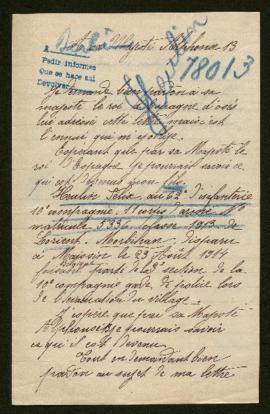 A sa Majesté Alphonse 13
A
Pedir informes
Que se hace asi
Devolver
78013
Je demande bien pardon à sa
majesté le roi d'Espagne d'avoir
lui adressé cette lettre mais c'est
l'ennui qui m'y oblige.
Espérant que par sa Majesté le
roi d'Espagne je pourrais savoir ce
qui est devenu mon fils
Houlin Felix, au 62e d'infanterie
10e compagnie
matricule classe 1913 de
Lorient, Morbihan, disparu
à Maissin le 23 Août 1914
faisait partie de la section de la
10e compagnie garde de police lors
de l'évacuation du village.
J'espère que par sa Majesté
Alphonse je pourrais savoir
ce qu'il est devenu.
Tout en demandant bien
pardon au sujet de ma lettre